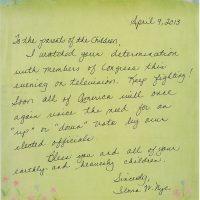 April 9, 2013
To the parents of the Children,
I watched your determination
with members of Congress this
evening on television. Keep fighting!
Soon all of America will once
again voice the need for an
"up" or "down" vote by our
elected officials
Bless you and all of your
earthly and heavenly children.
Sincerely,
W. Nye